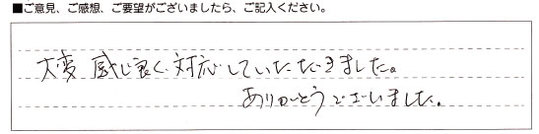 ■ご意見、ご感想、ご要望がございましたら、ご記入ください。
大変 感じ良く対応していただきました。
ありがとうございました。